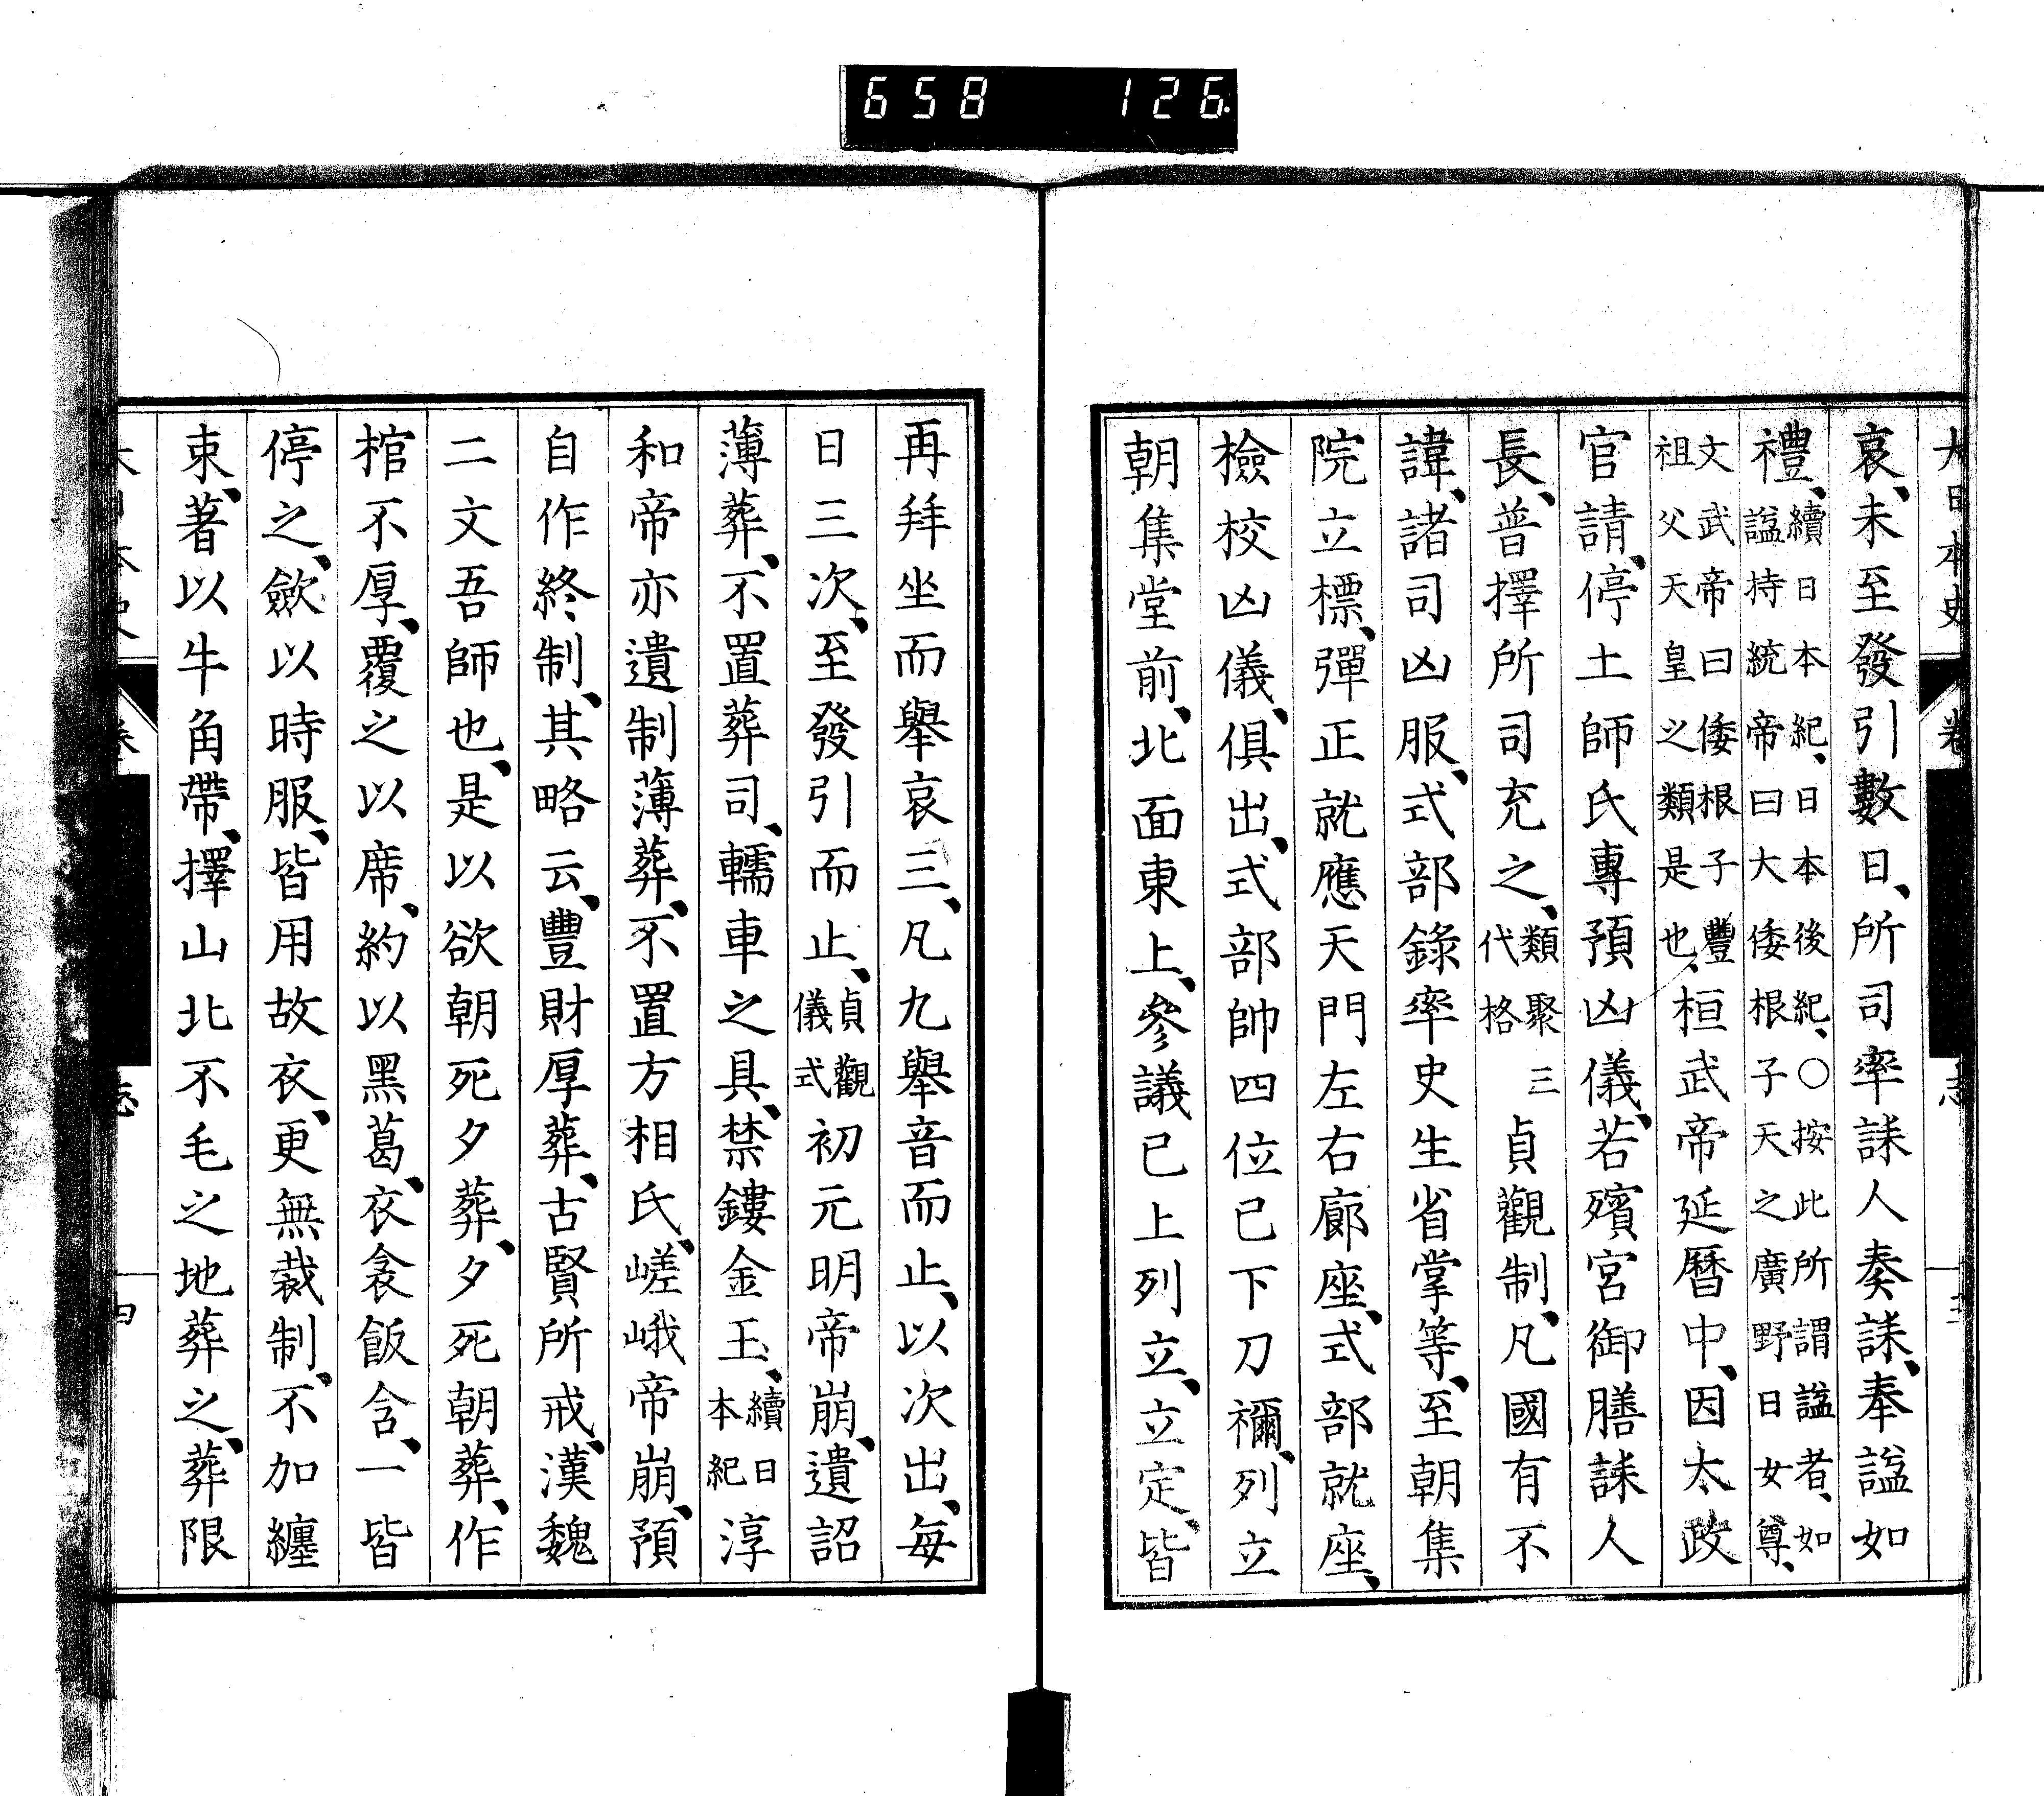 658 126
大日本史 卷 志
哀、未至發引數日、所司率誄人奏誄、奉諡如
禮、續日本紀、日本後紀、○按此所謂諡者、如諡持統帝曰大倭根子天之廣野日女尊、
文武帝曰倭根子豐祖父天皇之類是也、桓武帝延曆中、因太政
官請、停土師氏專預凶儀、若殯宮御膳誄人
長、普擇所司充之、類聚三代格 貞觀制、凡國有不
諱、諸司凶服、式部錄率史生省掌等、至朝集
院立標、彈正就應天門左右廊座、式部就座、
檢校凶儀、俱出、式部帥四位已下刀禰、列立
朝集堂前、北面東上、參議已上列立、立定、皆
再拜坐而舉哀三、凡九舉音而止、以次出、每
日三次、至發引而止、貞觀儀式 初元明帝崩、遺詔
薄葬、不置葬司、轜車之具、禁鏤金玉、續日本紀 淳
和帝亦遺制薄葬、不置方相氏、嵯峨帝崩、預
自作終制、其略云、豐財厚葬、古賢所戒、漢魏
二文吾師也、是以欲朝死夕葬、夕死朝葬、作
棺不厚、覆之以席、約以黑葛、衣衾飯含、一皆
停之、斂以時服、皆用故衣、更無裁制、不加纏
束、著以牛角帶、擇山北不毛之地葬之、葬限